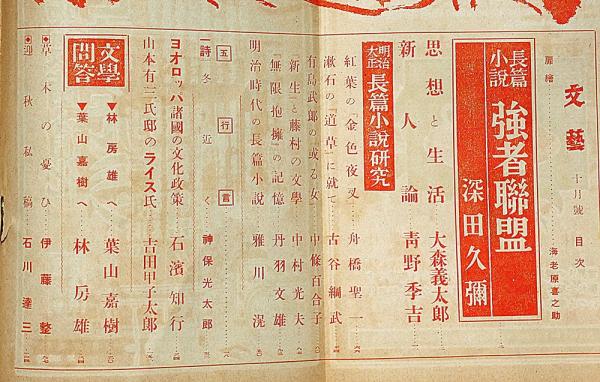 文藝 十月號 目次
扉繪 海老原喜之助
長篇小説 強者聯盟 深田久彌
思想と生活 大森義太郎
新人論 青野季吉
明治大正 長篇小説研究
紅葉の「金色夜叉」 舟橋聖一
漱石の「道草」に就て 古谷綱武
有島武郎の或る女 中條百合子
「新生」と藤村の文學 中村光夫
「無限抱擁」の記憶 丹羽文雄
明治時代の長篇小説 雅川滉
五行言
一詩 冬近く 神保光太郎
ヨオロッパ諸國の文化政策 石濱知行
山本有三氏邸のライス氏 吉田甲子太郎
文學問答
▼林房雄へ 葉山嘉樹
▼葉山嘉樹へ 林房雄
草木の憂ひ 伊藤整
迎秋私稿 石川達三